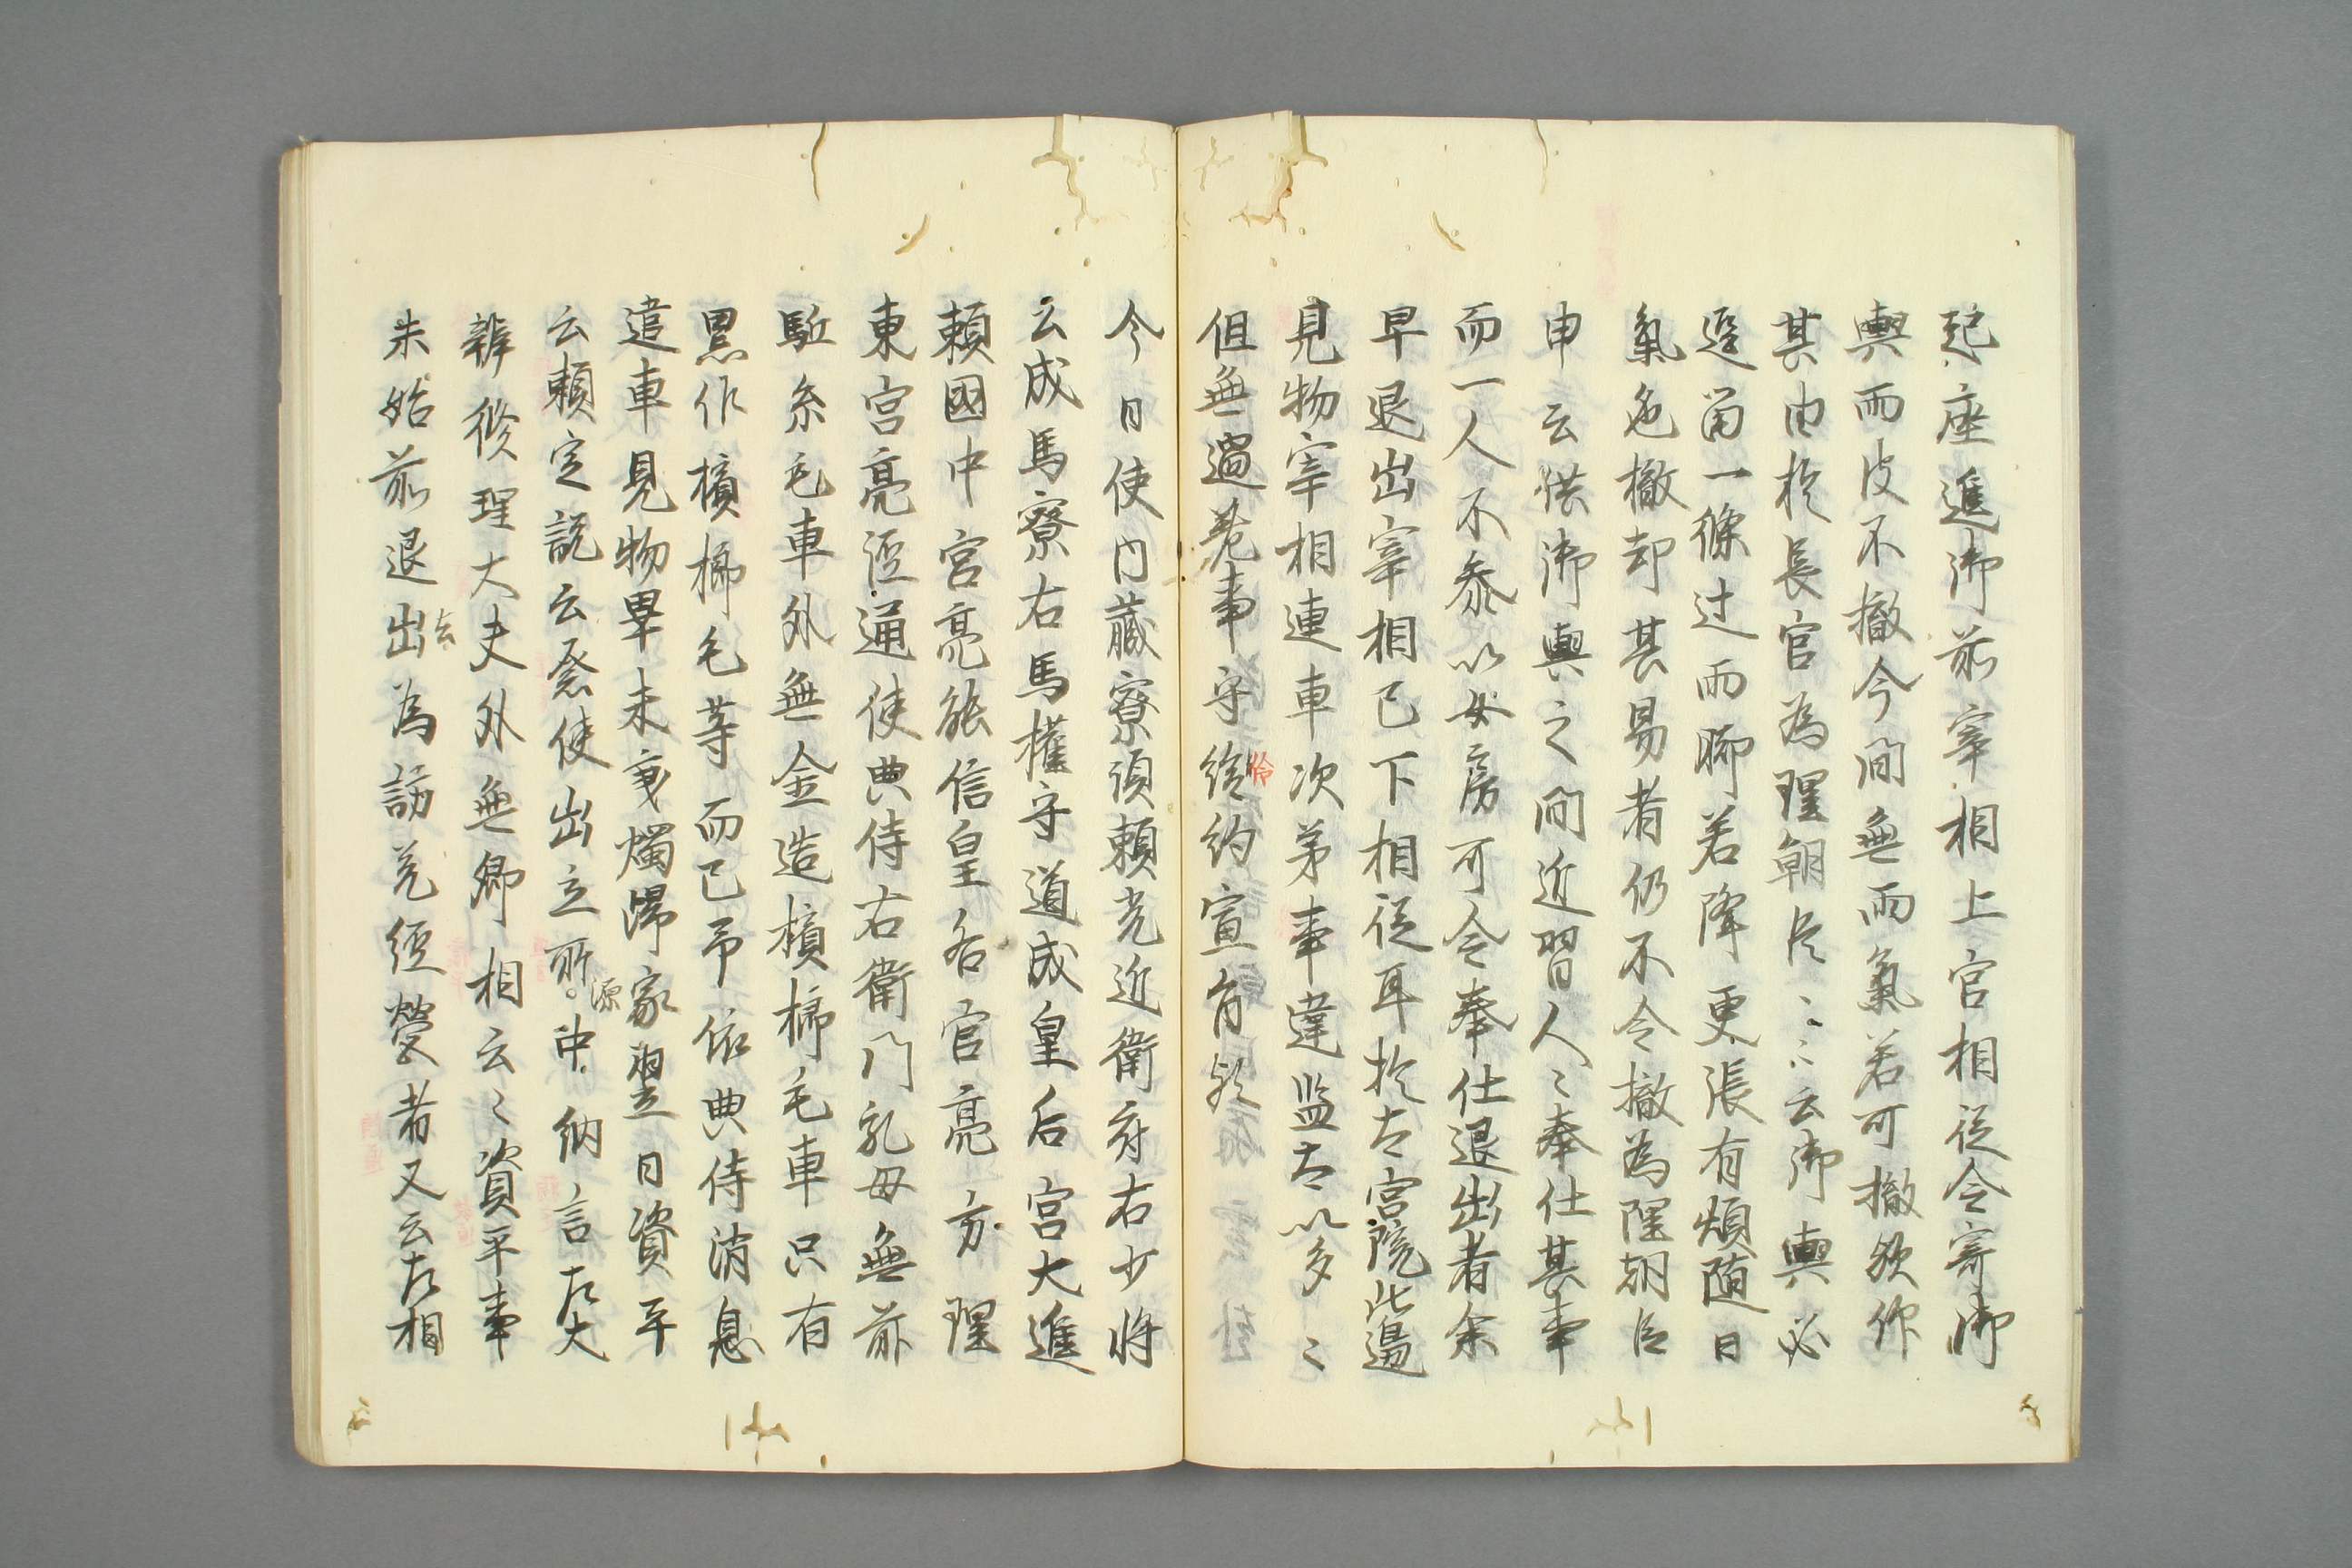 起座進御前宰相上官相従令寄御
輿而皮不撤今間無雨氣若可撤欤仰
其由於長官為理朝臣〻〻云御輿必
逗留一條辻而聊若降更張有煩随日
氣色撤却甚易者仍不令撤為理朝臣
申云供御輿之間近習人〻奉仕其事
而一人不参以女房可令奉仕退出者余
早退出宰相已下相従耳於古宮院北邊
見物宰相連車次第事違監古以多〻
但無過差事守給約宣旨欤
怜
今日使内蔵寮頭頼光近衛府右少将
云成馬寮右馬権守道成皇后宮大進
頼國中宮亮能信皇后宮亮方理
東宮亮經通使典侍右衛門乳母無前
駈糸毛車外無金造檳榔毛車只有
黒作檳榔毛等而已弔依典侍消息
遣車見物畢未秉燭帰家翌日資平
云頼定説云祭使出立所中納言左大
源
辨修理大夫外無卿相云〻資平事
未始前退出為訪差經營者又云左相
云